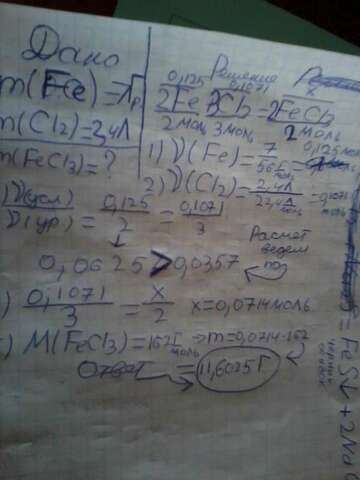 Дано
m(Fe)=7г
m(Cl2)=2,4л
m(FeCl3)=?
Решение
0,125 0,1071 x
2Fe+3Cl2=2FeCl3
2моль 3моль 2моль
1) ν(Fe)=7/56г/моль=0,125моль
2) ν(Cl2)=2,4л/22,4л/моль=0,1071моль
) ν(усл)/ν(ур)=0,125/2=0,1071/3
0,0625>0,0357
Расчет
ведем
по
) 0,1071/3=x/2 x=0,0714моль
) M(FeCl3)=162г/моль→m=0,0714·162
Ответ =11,6025г
=FeS↓+2Na
черный
осадок